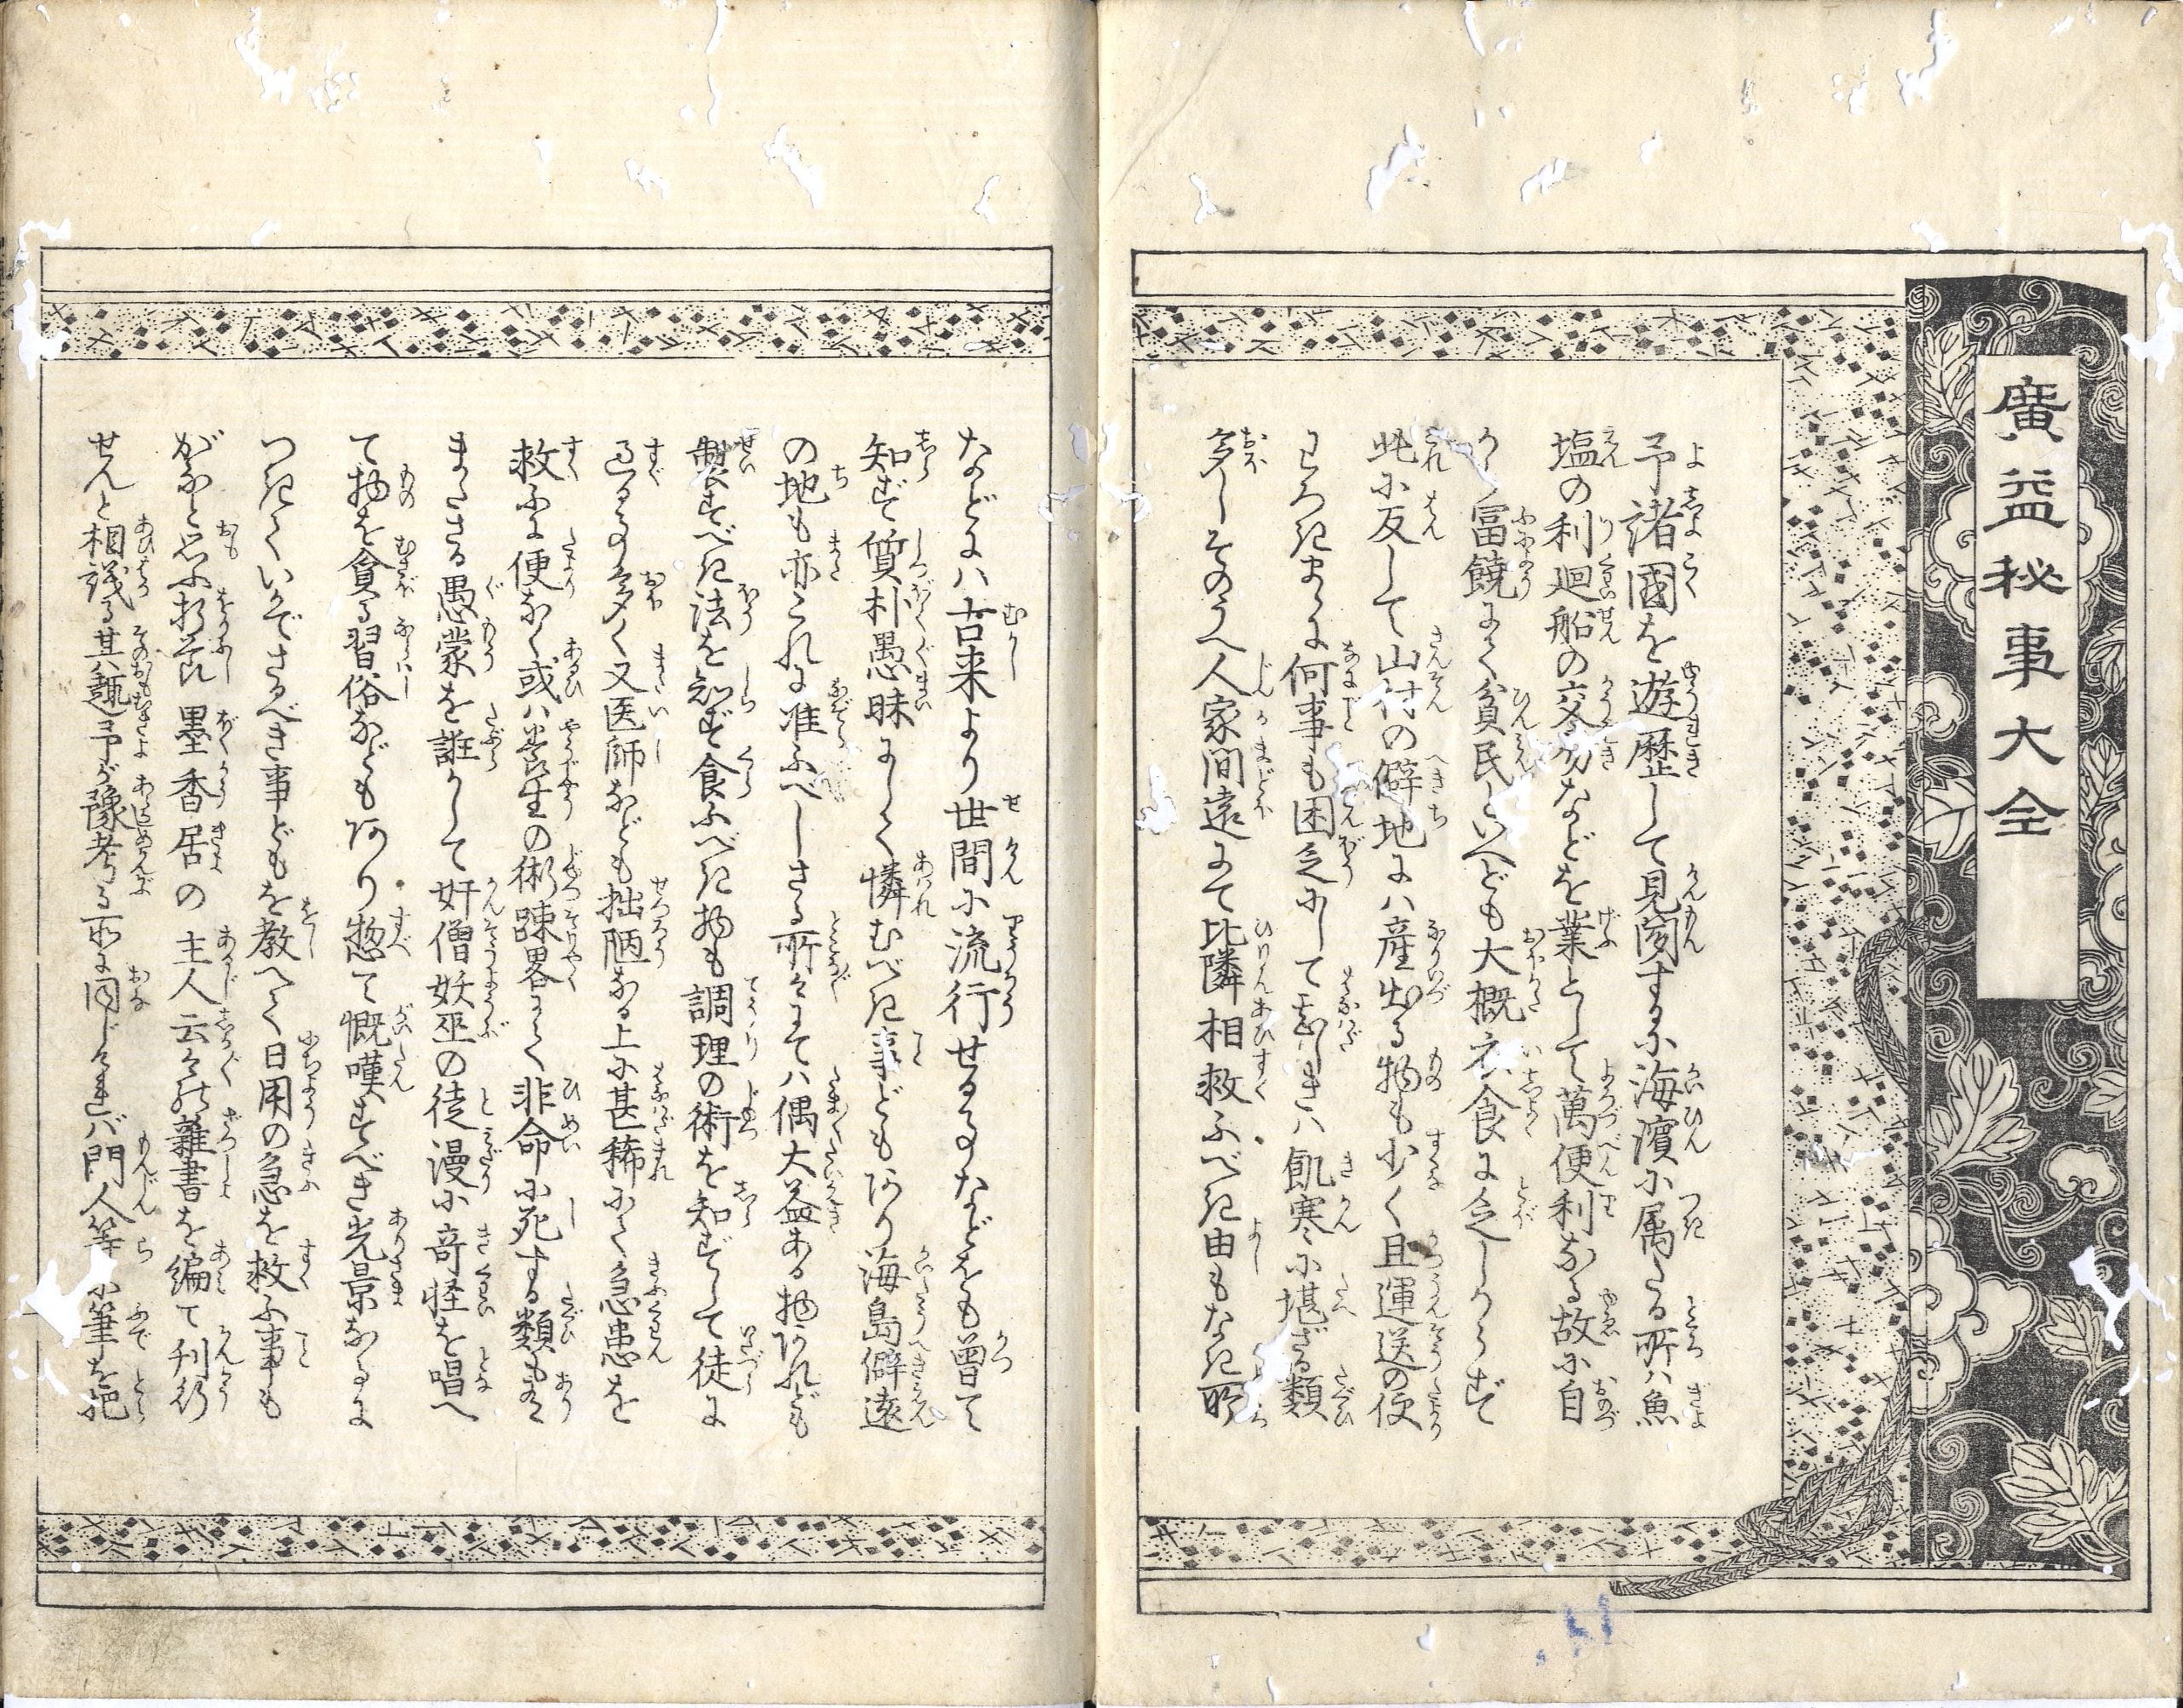 廣益秘事大全
予諸國を遊歴して見聞するに海濱に属たる所ハ魚
塩の利廻船の交易などを業として萬便利なる故に自
から富饒にて貧民といへども大概衣食に乏しからず
此に反して山村の僻地にハ産出る物も少く且運送の便
よろしきまゝに何事も困乏にして甚しきハ飢寒に堪ざる類
多しそのうへ人家間遠にて比隣相救ふべき由もなき所
などにハ古来より世間に流行せる事などをも曽て
知ず質朴愚昧にして憐むべき事どもあり海島僻遠
の地も亦これに准ふべしさる所々にてハ偶大益ある物あれども
製すべき法を知ず食ふべき物も調理の術を知ずして徒に
過る事多く又医師なども拙陋なる上に甚稀にて急患を
救ふに便なく或ハ養生の術踈畧にて非命に死する類も有
またさる愚蒙を誑かして奸僧妖巫の徒漫に奇怪を唱へ
て物を貪る習俗などもあり惣て慨嘆すべき光景なるに
つきていかでさるべき事どもを教へて日用の急を救ふ事も
がなと思ふ折節墨香居の主人云々の雜書を編て刊行
せんと相議る其趣予が豫考る所に同じければ門人等に筆を把